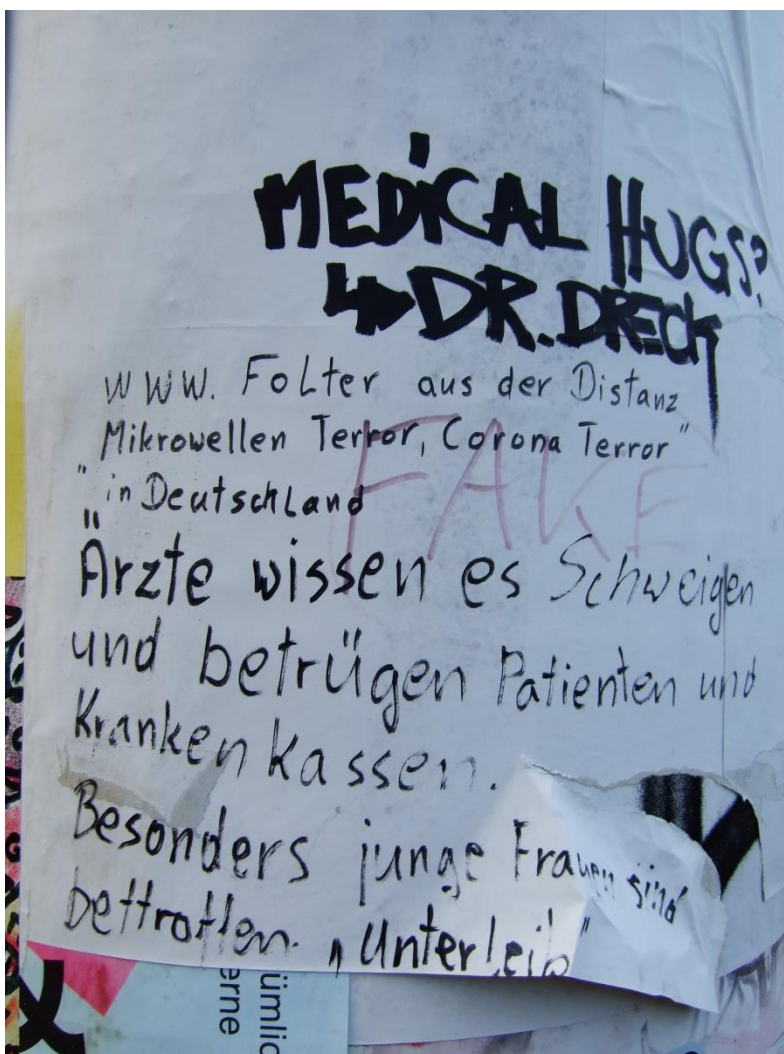 MEDiCAL HUGS?
↳DR. DRECK
WWW. Folter aus der Distanz
Mikrowellen Terror, Corona Terror"
"in Deutschland
FAKE
Ärzte wissen es Schweigen
und betrügen Patienten und
Krankenkassen.
Besonders junge Frauen sind
bettroffen. „Unterleib"
ümlic
erne